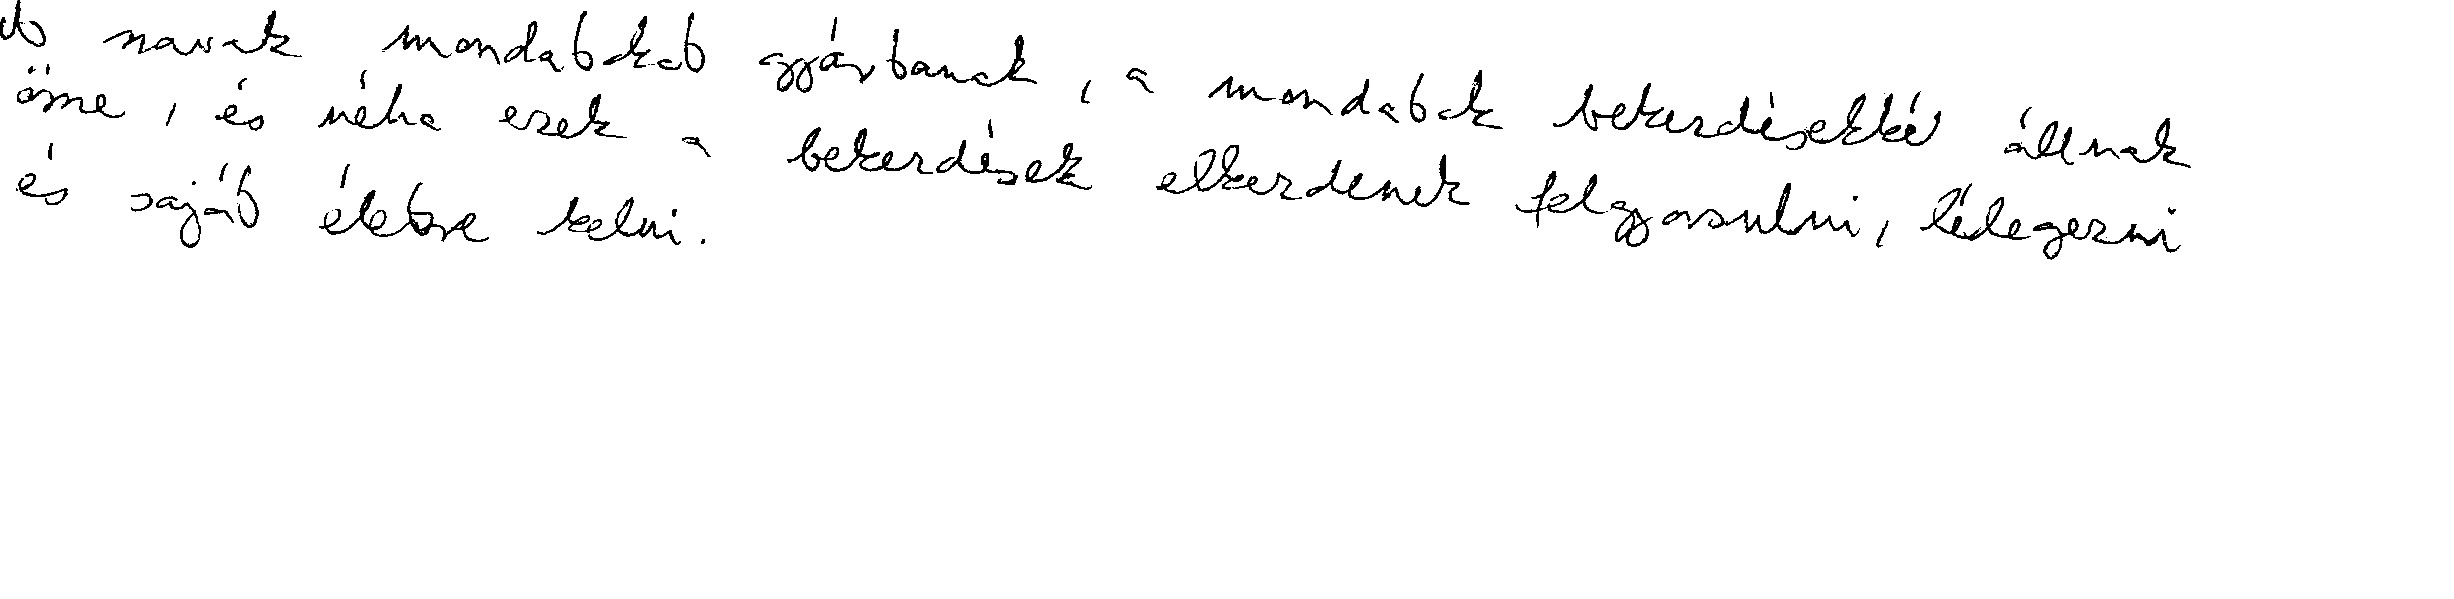 szavak mondatokat gyártanak, a mondatok bekezdésekké állnak
össze, és néha ezek a bekezdések elkezdenek felgyorsulni, lélegezni
és saját életre kelni.